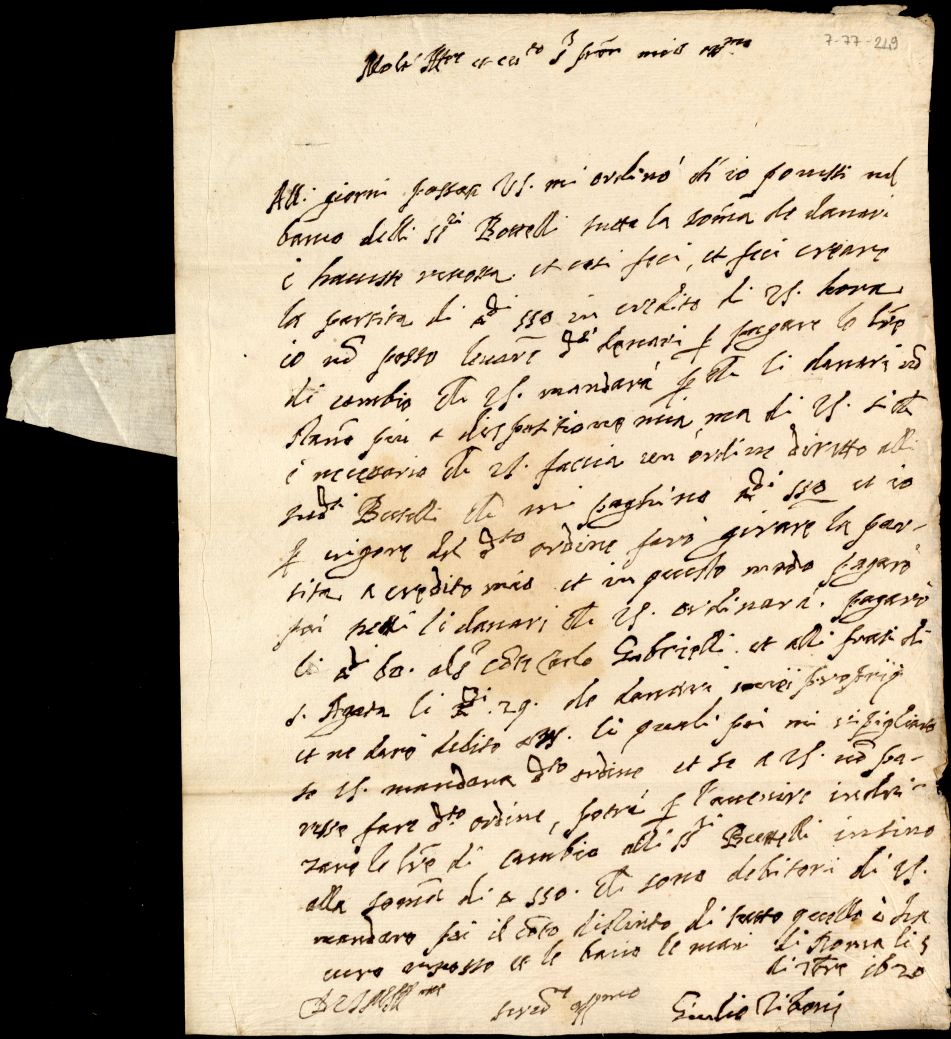 7-77-249
Molt' Ill.re et ecc.to S.r pron mio
Alli giorni passati VS. mi ordinò ch' io ponessi nel
banco delli SS.ri Bottelli tutta la soma de danari
havesse riscossa. et così feci, et feci creare
la partita di 550 in credito di VS. hora
io nõ posso levare d.ti denari p pagare le lrẽ
di cambio che VS. mandarà che li danari nõ
stano più a dispositione mia, ma di VS. si che
è necessario che VS. faccia un ordine diretto alli
sud.ti Bottelli che mi paghino 550 et io
p vigore del d.to ordine farò girare la par-
tita a credito mio et in questo modo pagarò
poi tutti li danari che VS. ordinarà. pagarò
li 60. al S.r Cõte Carlo Gabrielli. et alli frati di
S. Agata li 29. de danari miei proprij
et ne darò debito a VS. li quali poi mi ripigliarò
se VS. mandara d.to ordine et se a VS. nõ pa-
resse fare d.to ordine, potrà p l'avenire indri-
zare le lrẽ di cambio alli SS.ri Bottelli insino
alla somã di 550. che sono debitori di VS.
mandarò poi il cõto distinto di tutto quello
riscosso et le bacio le mani di Roma li 3
di 7bre 1620
Di VS molt' Ill.re
ser.re
Giulio Tiboni